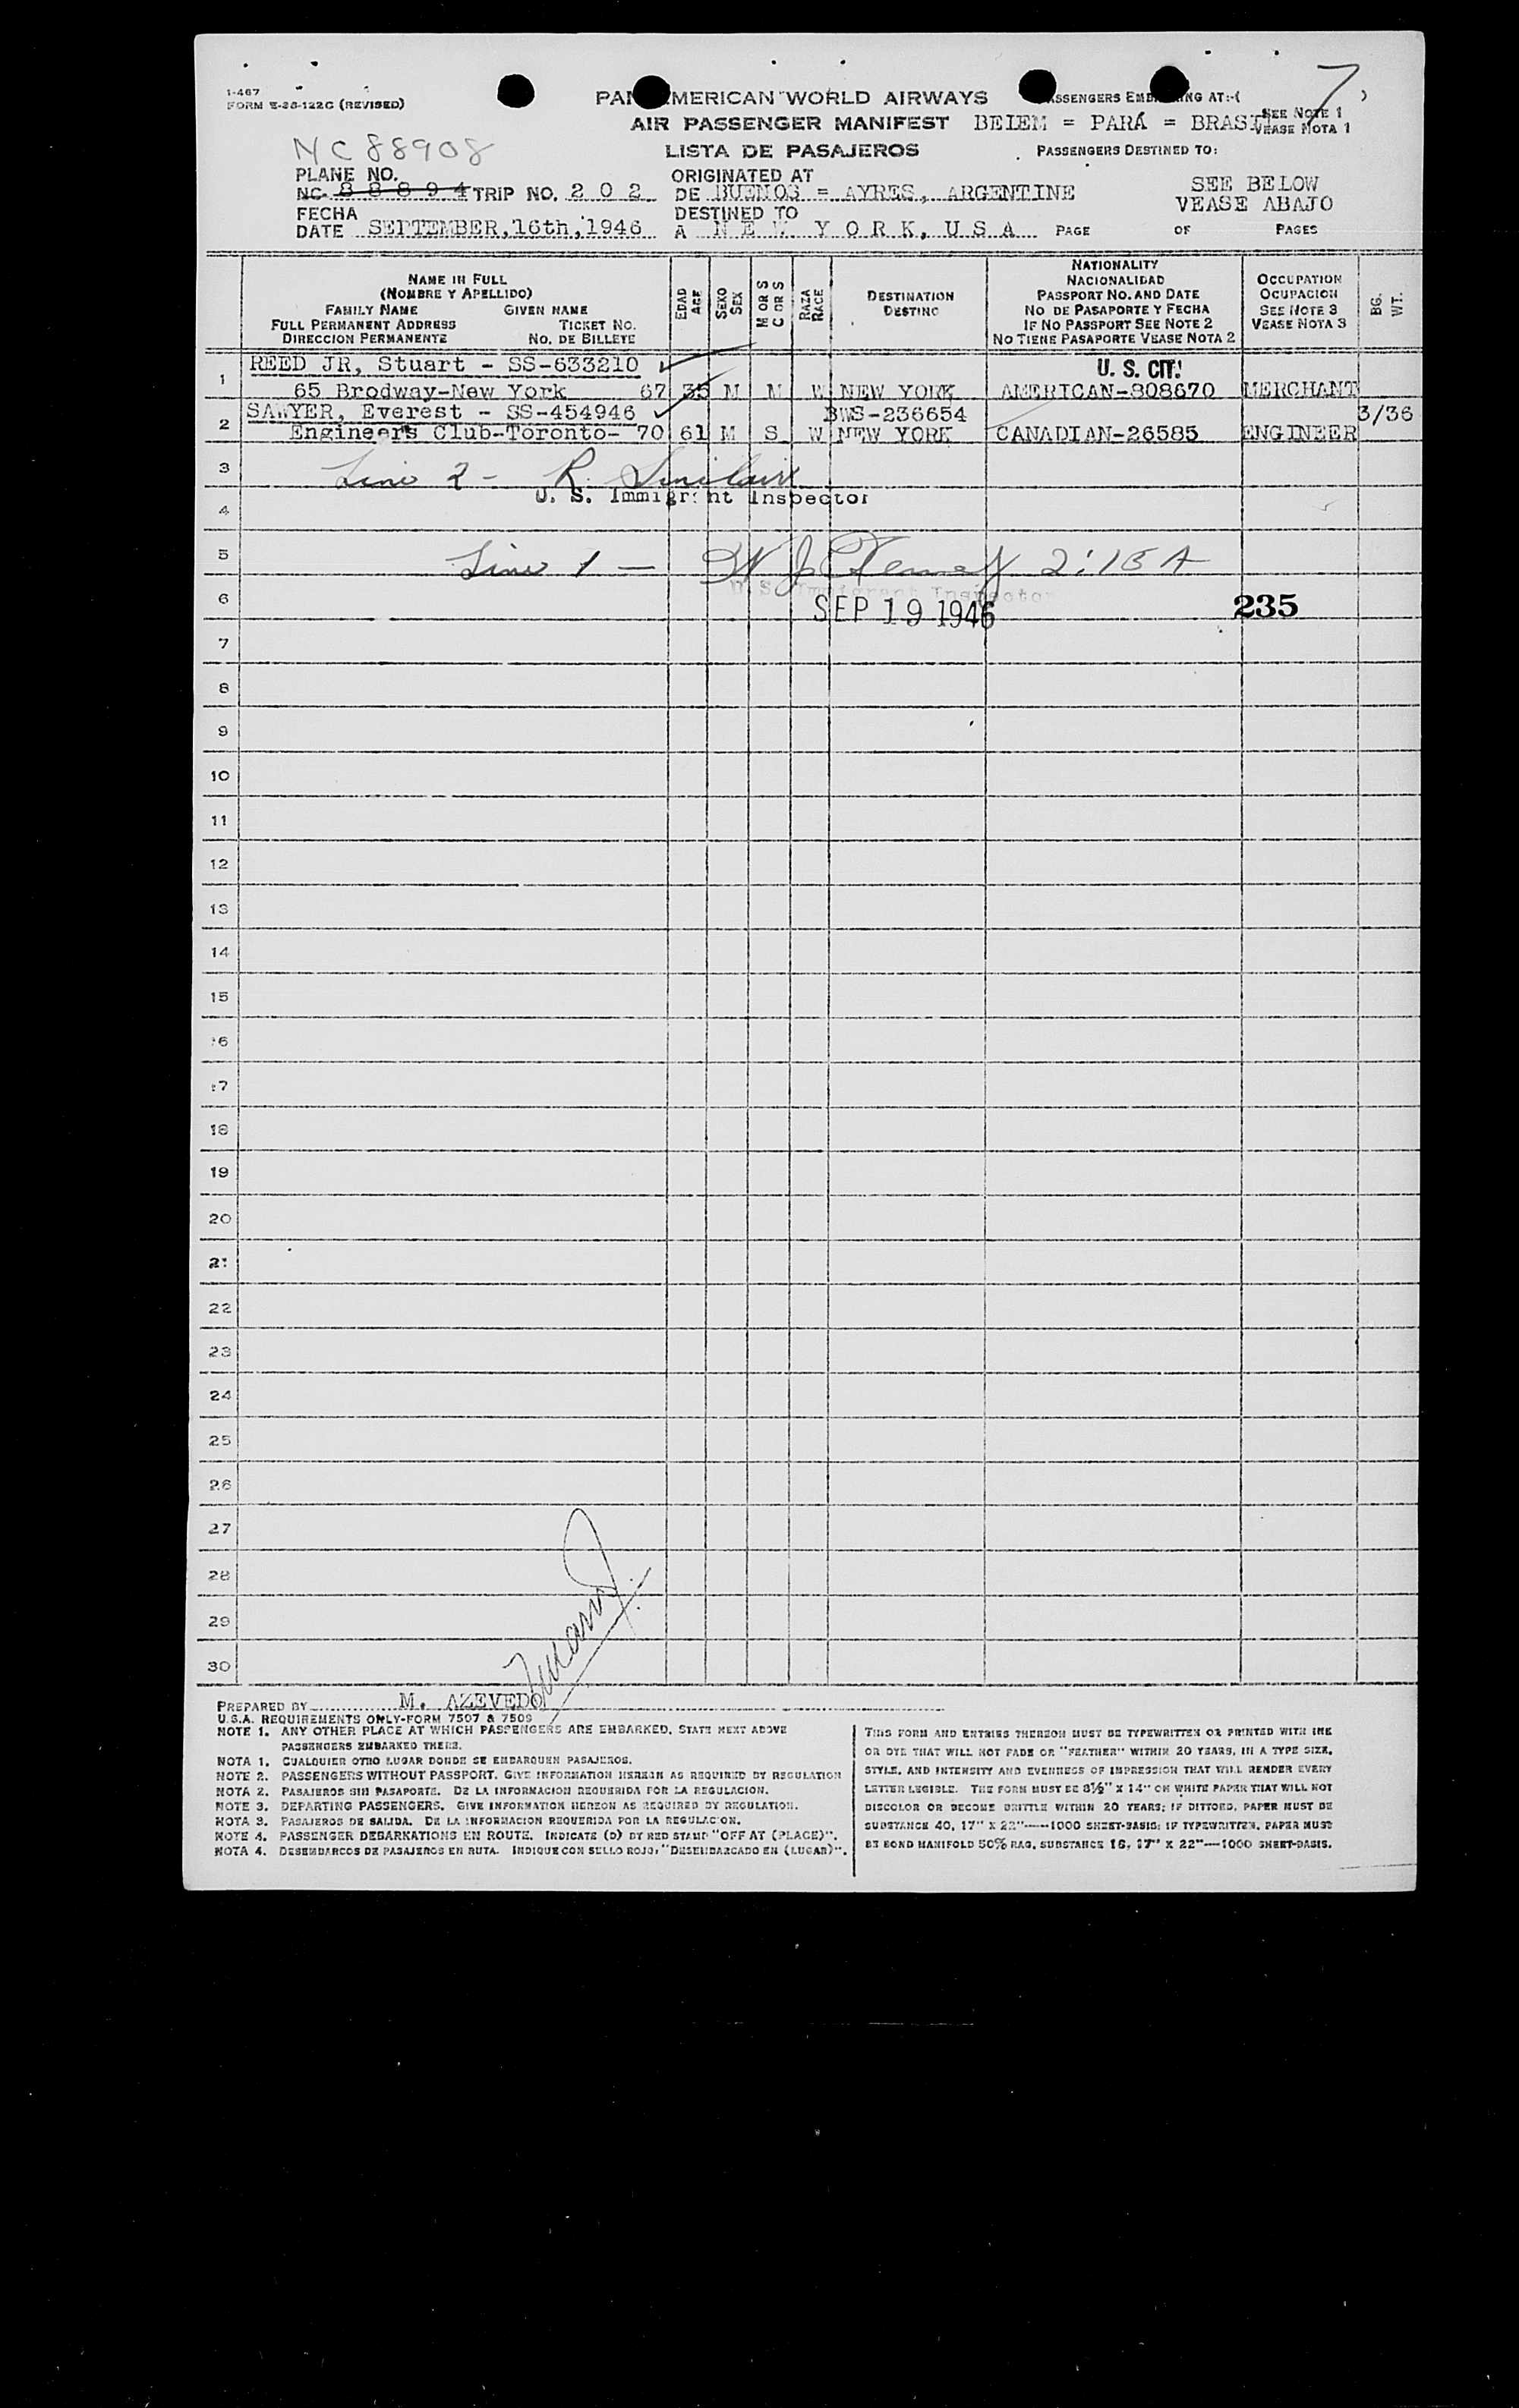 1-467
FORM E-28-122C (REVISED)
7
PAN AMERICAN WORLD AIRWAYS
PASSENGERS EMBARKING AT:-(
SEE NOTE 1
AIR PASSENGER MANIFEST BELEM = PARÁ = BRASIL
VEASE NOTA 1
NC 88908
LISTA DE PASAJEROS
PASSENGERS DESTINED TO:
PLANE NO.
ORIGINATED AT
NC- 8 8 8 9 4 TRIP NO. 2 0 2 DE BUENOS = AYRES, ARGENTINE
SEE BELOW
VEASE ABAJO
FECHA
DESTINED TO
DATE SEPTEMBER, 16th, 1946 A N E W Y O R K, U S A PAGE OF PAGES
NAME IN FULL
(NOMBRE Y APELLIDO)
FAMILY NAME GIVEN NAME
FULL PERMANENT ADDRESS TICKET NO.
DIRECCION PERMANENTE NO. DE BILLETE
EDAD
AGE
SEXO
SEX
M OR S
C OR S
RAZA
RACE
DESTINATION
DESTINO
NATIONALITY
NACIONALIDAD
PASSPORT NO. AND DATE
NO DE PASAPORTE Y FECHA
IF NO PASSPORT SEE NOTE 2
NO TIENE PASAPORTE VEASE NOTA 2
OCCUPATION
OCUPACION
SEE NOTE 3
VEASE NOTA 3
BG.
WT.
REED JR, Stuart - SS-633210 U. S. CIT.
1 65 Brodway-New York 67 35 M M W NEW YORK AMERICAN-808670 MERCHANT
SAWYER, Everest - SS-454946 BWS-236654 3/36
2 Engineers Club-Toronto- 70 61 M S W NEW YORK CANADIAN-26585 ENGINEER
3 Line 2 - R. Sinclair
U. S. Immigrant Inspector
4
5 Line 1 - W J 2:15 A
U. S. Immigrant Inspector
6 SEP 19 1946 235
7
8
9
10
11
12
13
14
15
16
17
18
19
20
21
22
23
24
25
26
27
28
29
30
PREPARED BY M. AZEVEDO
U.S.A. REQUIREMENTS ONLY-FORM 7507 & 7509
NOTE 1. ANY OTHER PLACE AT WHICH PASSENGERS ARE EMBARKED, STATE NEXT ABOVE
PASSENGERS EMBARKED THERE.
NOTA 1. CUALQUIER OTRO LUGAR DONDE SE EMBARQUEN PASAJEROS.
NOTE 2. PASSENGERS WITHOUT PASSPORT. GIVE INFORMATION HEREON AS REQUIRED BY REGULATION
NOTA 2. PASAJEROS SIN PASAPORTE. DE LA INFORMACION REQUERIDA POR LA REGULACION.
NOTE 3. DEPARTING PASSENGERS. GIVE INFORMATION HEREON AS REQUIRED BY REGULATION.
NOTA 3. PASAJEROS DE SALIDA. DE LA INFORMACION REQUERIDA POR LA REGULACION.
NOTE 4. PASSENGER DEBARKATIONS EN ROUTE. INDICATE (D) BY RED STAMP "OFF AT (PLACE)".
NOTA 4. DESEMBARCOS DE PASAJEROS EN RUTA. INDIQUE CON SELLO ROJO, "DESEMBARCADO EN (LUGAR)".
THIS FORM AND ENTRIES THEREON MUST BE TYPEWRITTEN OR PRINTED WITH INK
OR DYE THAT WILL NOT FADE OR "FEATHER" WITHIN 20 YEARS, IN A TYPE SIZE,
STYLE, AND INTENSITY AND EVENNESS OF IMPRESSION THAT WILL RENDER EVERY
LETTER LEGIBLE. THE FORM MUST BE 8½" X 14" ON WHITE PAPER THAT WILL NOT
DISCOLOR OR BECOME BRITTLE WITHIN 20 YEARS; IF DITTOED, PAPER MUST BE
SUBSTANCE 40, 17" X 22"----1000 SHEET-BASIS; IF TYPEWRITTEN, PAPER MUST
BE BOND MANIFOLD 50% RAG, SUBSTANCE 16, 17" X 22"----1000 SHEET-BASIS.